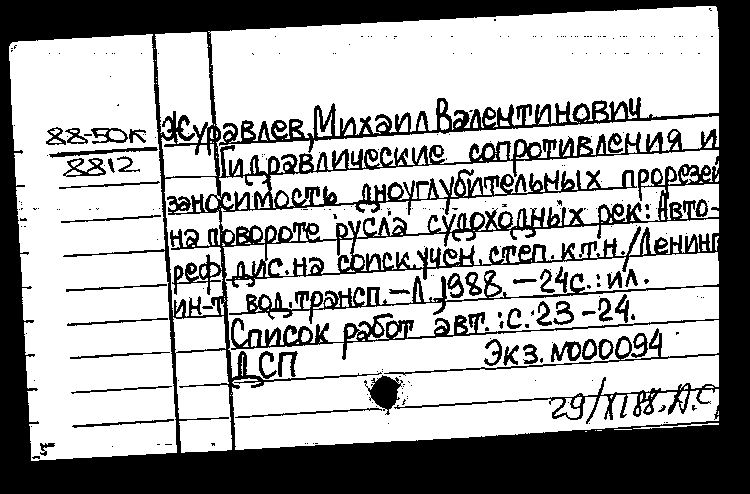 88-50К
8812
Журавлев, Михаил Валентинович.
Гидравлические сопротивления и
заносимость дноуглубительных прорезей
на повороте русла судоходных рек: Авто-
реф. дис. на соиск. учен. степ. к.т.н. / Ленингр
ин-т вод. трансп. – Л., 1988. – 24с.: ил.
Список работ авт.: с. 23-24.
ДСП Экз. N000094
29/XI 88. А.С